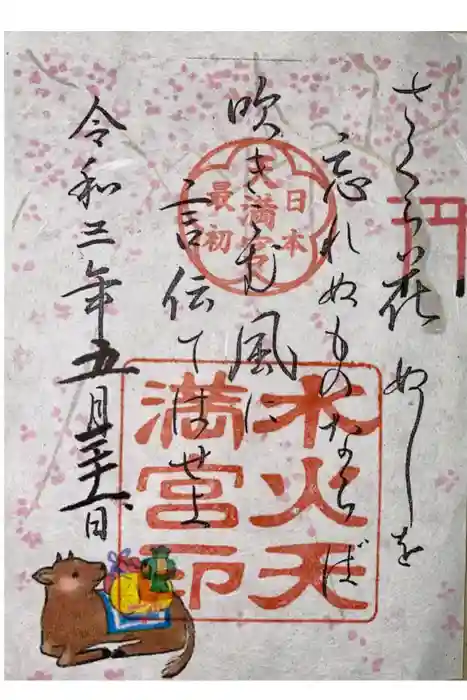 さくら花 ぬしを
忘れぬものならば
吹きこむ風に
言伝てはせよ
令和三年五月二十一日
天満宮
日本
最初
水火天
満宮印